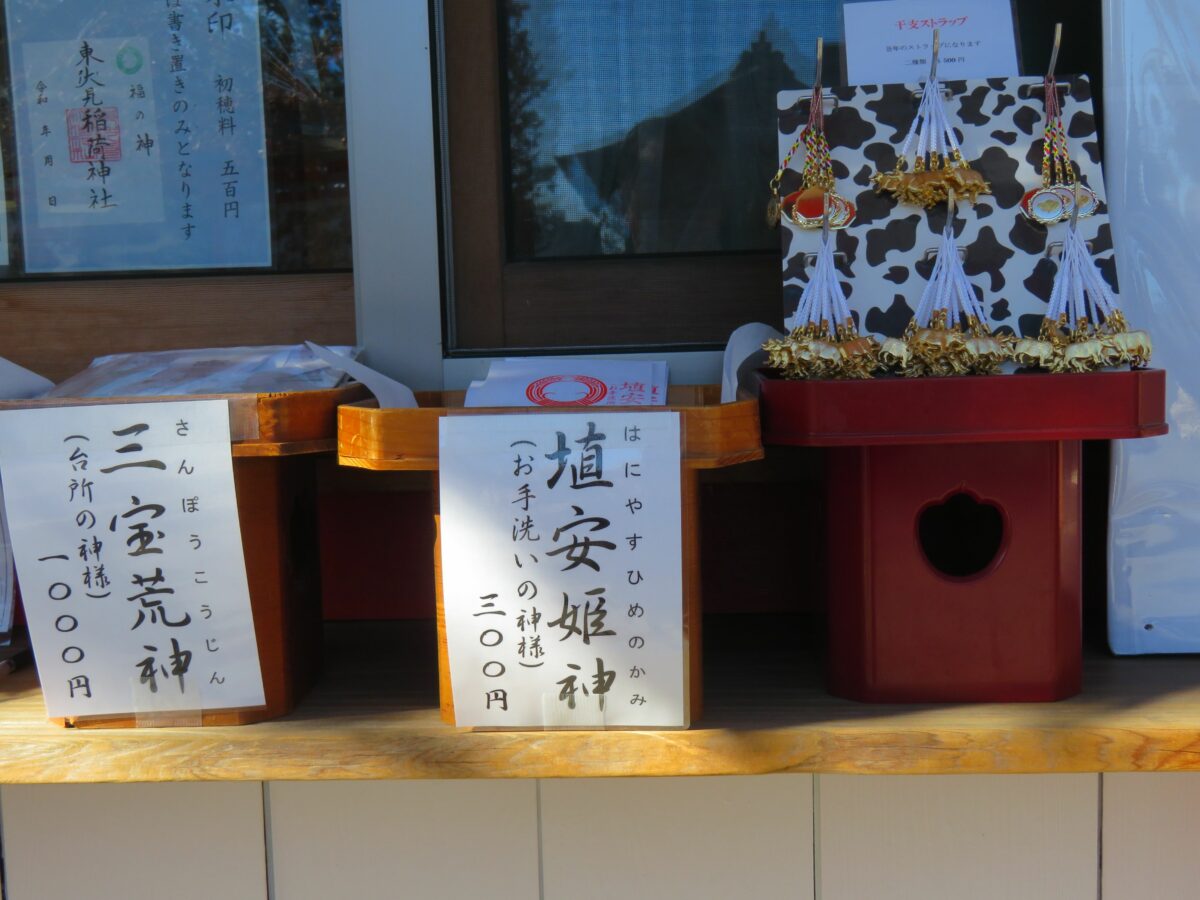 書き置きのみとなります
初穂料 五百円
福の神
東伏見稲荷神社
令和 年 月 日
干支ストラップ
500円
さんぽうこうじん
三宝荒神
(台所の神様)
一〇〇〇円
はにやすひめのかみ
埴安姫神
(お手洗いの神様)
三〇〇円
埴安